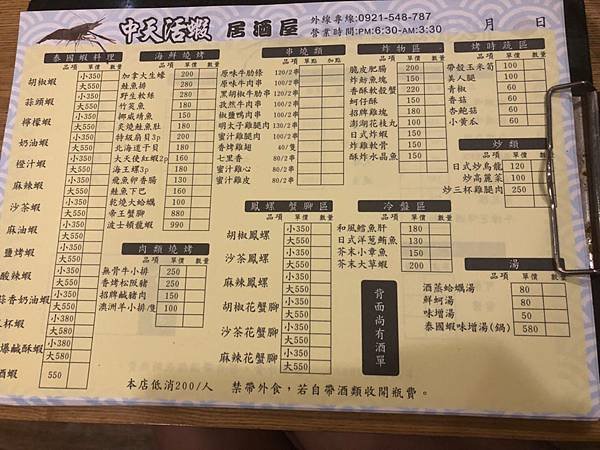 中天活蝦 居酒屋
外線專線:0921-548-787
營業時間:PM:6:30-AM:3:30
月 日
泰國蝦料理
品項 單價 數量
胡椒蝦 小350 大550
蒜頭蝦 小350 大550
檸檬蝦 小350 大550
奶油蝦 小350 大550
橙汁蝦 小350 大550
麻辣蝦 小350 大550
沙茶蝦 小350 大550
麻油蝦 小350 大550
鹽烤蝦 小350 大550
酸辣蝦 小350 大550
蒜香奶油蝦 小350 大550
三杯蝦 小380 大580
爆鹹酥蝦 小380 大580
酒蝦 550
海鮮燒烤
品項 單價 數量
加拿大生蠔 200
鮭魚排 280
野生軟絲 280
竹筴魚 180
挪威鯖魚 180
炙燒鮭魚肚
特級扇貝3p
北海道干貝 180
大天使紅蝦2p 160
海王螺3p
飛魚卵香腸 130
鮭魚下巴 160
乾燒大蛤蠣 100
帝王蟹腳 880
波士頓龍蝦 990
肉類燒烤
品項 單價 數量
無骨牛小排 250
香烤松阪豬 250
招牌鹹豬肉 150
澳洲羊小排/隻 100
串燒類
品項 單點 加點
原味牛肋條 120/2串
原味牛肉串 100/2串
黑胡椒牛肋串 120/2串
孜然牛肉串 100/2串
椒鹽鴨肉串 100/2串
明太子雞腿肉 130/2串
蜜汁雞腿肉 100/2串
香烤雞翅 40/隻
七里香 80/2串
蜜汁雞心 80/2串
蜜汁雞皮 80/2串
鳳螺 蟹腳區
品項 單價 數量
胡椒鳳螺 小350 大550
沙茶鳳螺 小350 大550
麻辣鳳螺 小350 大550
胡椒花蟹腳 小350 大550
沙茶花蟹腳 小350 大550
麻辣花蟹腳 小350 大550
炸物區
品項 單價 數量
脆皮肥腸 200
炸鯚魚塊 150
香酥軟殼蟹 220
蚵仔酥 150
招牌雞塊 120
澎湖花枝丸 150
日式炸蝦 150
炸雞軟骨 150
酥炸水晶魚 150
冷盤區
品項 單價 數量
和風鱈魚肝 180
日式洋蔥鮪魚 130
芥末小章魚 150
芥末大草蝦 200
背面尚有酒單
烤時蔬區
品項 單價 數量
帶殼玉米筍 100
美人腿 100
青椒 60
香菇 60
杏鮑菇 60
小黃瓜 60
炒類
品項 單價 數量
日式炒烏龍 120
炒高麗菜 100
炒三杯雞腿肉 250
湯
品項 單價 數量
酒蒸蛤蠣湯 80
鮮蚵湯 80
味增湯 50
泰國蝦味增湯(鍋) 580
本店低消200/人 禁帶外食,若自帶酒類收開瓶費。